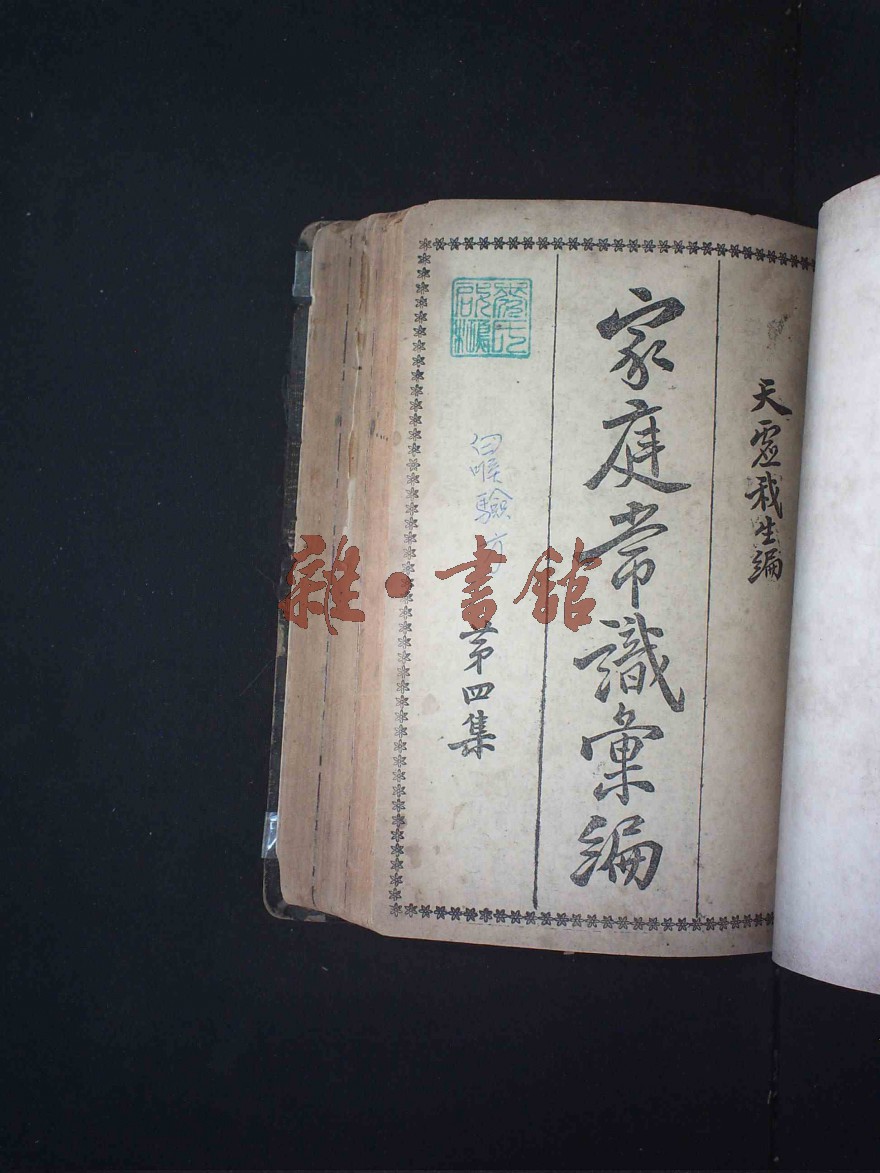 天虛我生編
家庭常識彙編
白喉驗方
第四集
雜·書館